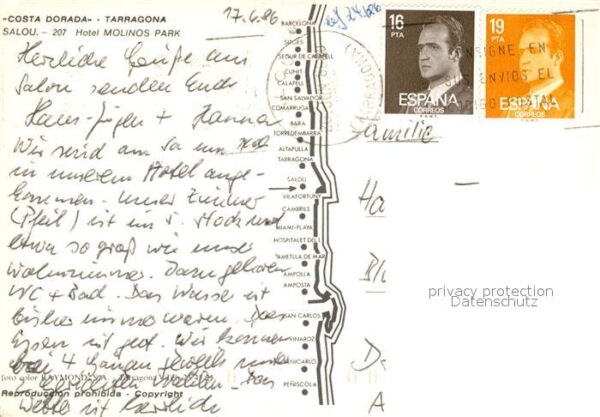 «COSTA DORADA» - TARRAGONA
SALOU. - 207 Hotel MOLINOS PARK
17.6.86
Herzliche Grüße aus
Salou senden Euch
Hans-Jürgen + Hanna
Wir sind am Sa um
in unserem Hotel ange-
kommen. Unser Zimmer
(Pfeil) ist im 5. Stock und
etwa so groß wie unser
Wohnzimmer. Dazu gehören
WC + Bad. Das Wasser ist
bisher immer warm. Das
Essen ist gut. Wir können
bei 4 Gängen
Wetter ist herrlich
foto color RAYMOND
Reproducción prohibida - Copyright
BARCELONA
SITGES
SEGUR DE CALAFELL
CUNIT
CALAFELL
SAN SALVADOR
COMARRUGA
BARA
TORREDEMBARRA
ALTAFULLA
TARRAGONA
SALOU
VILAFORTUNY
CAMBRILS
MIAMI-PLAYA
HOSPITALET DEL I.
AMETLLA DE MAR
AMPOLLA
AMPOSTA
SAN CARLOS
VINAROZ
BENICARLO
PEÑISCOLA
16
PTA
ESPAÑA
CORREOS
19
PTA
ESPAÑA
CORREOS
CONSIGNE EN
ENVIOS EL
Familie
Ha
privacy protection
Datenschutz